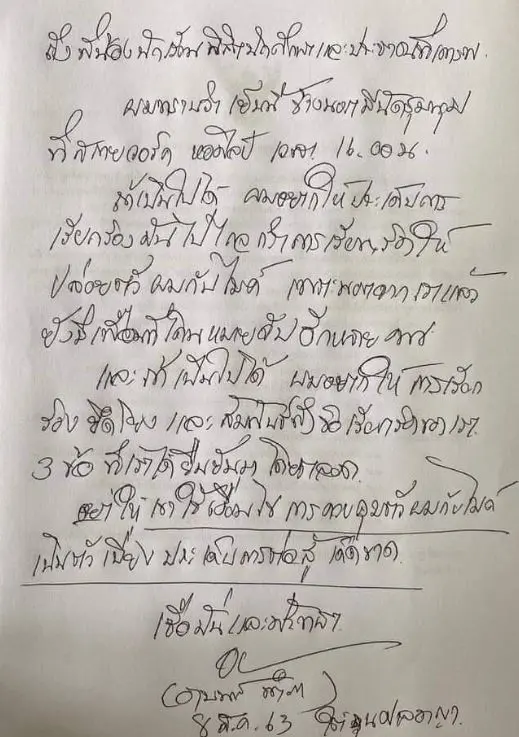 ถึง พี่น้อง นักเรียน นิสิต นักศึกษา และประชาชนที่เคารพ
ผมทราบว่า เย็นนี้ ข้างนอกมีนัดชุมนุม
ที่ สกายวอร์ค หอศิลป์ เวลา 16.00 น.
ถ้าเป็นไปได้ ผมอยากให้ ประเด็นการ
เรียกร้อง มันไปไกล กว่าการเรียกร้องให้
ปล่อยตัว ผมกับไมค์ เพราะนอกจาก เราแล้ว
ยังมี เพื่อนที่โดนหมายจับ อีกหลาย คน
และ ถ้าเป็นไปได้ ผมอยากให้ การเรียก
ร้อง ยึดโยง และ สัมพันธ์กับ ข้อเรียกร้องของเรา
3 ข้อ ที่เราได้ยืนยันมา โดยตลอด
อย่าให้ เขาใช้เงื่อนไข การควบคุมตัวผมกับไมค์
เป็นตัว เบี่ยง ประเด็นการต่อสู้ เด็ดขาด
เชื่อมั่นและศรัทธา
(อานนท์ นำภา)
8 ส.ค. 63 ใต้ถุนศาลอาญา